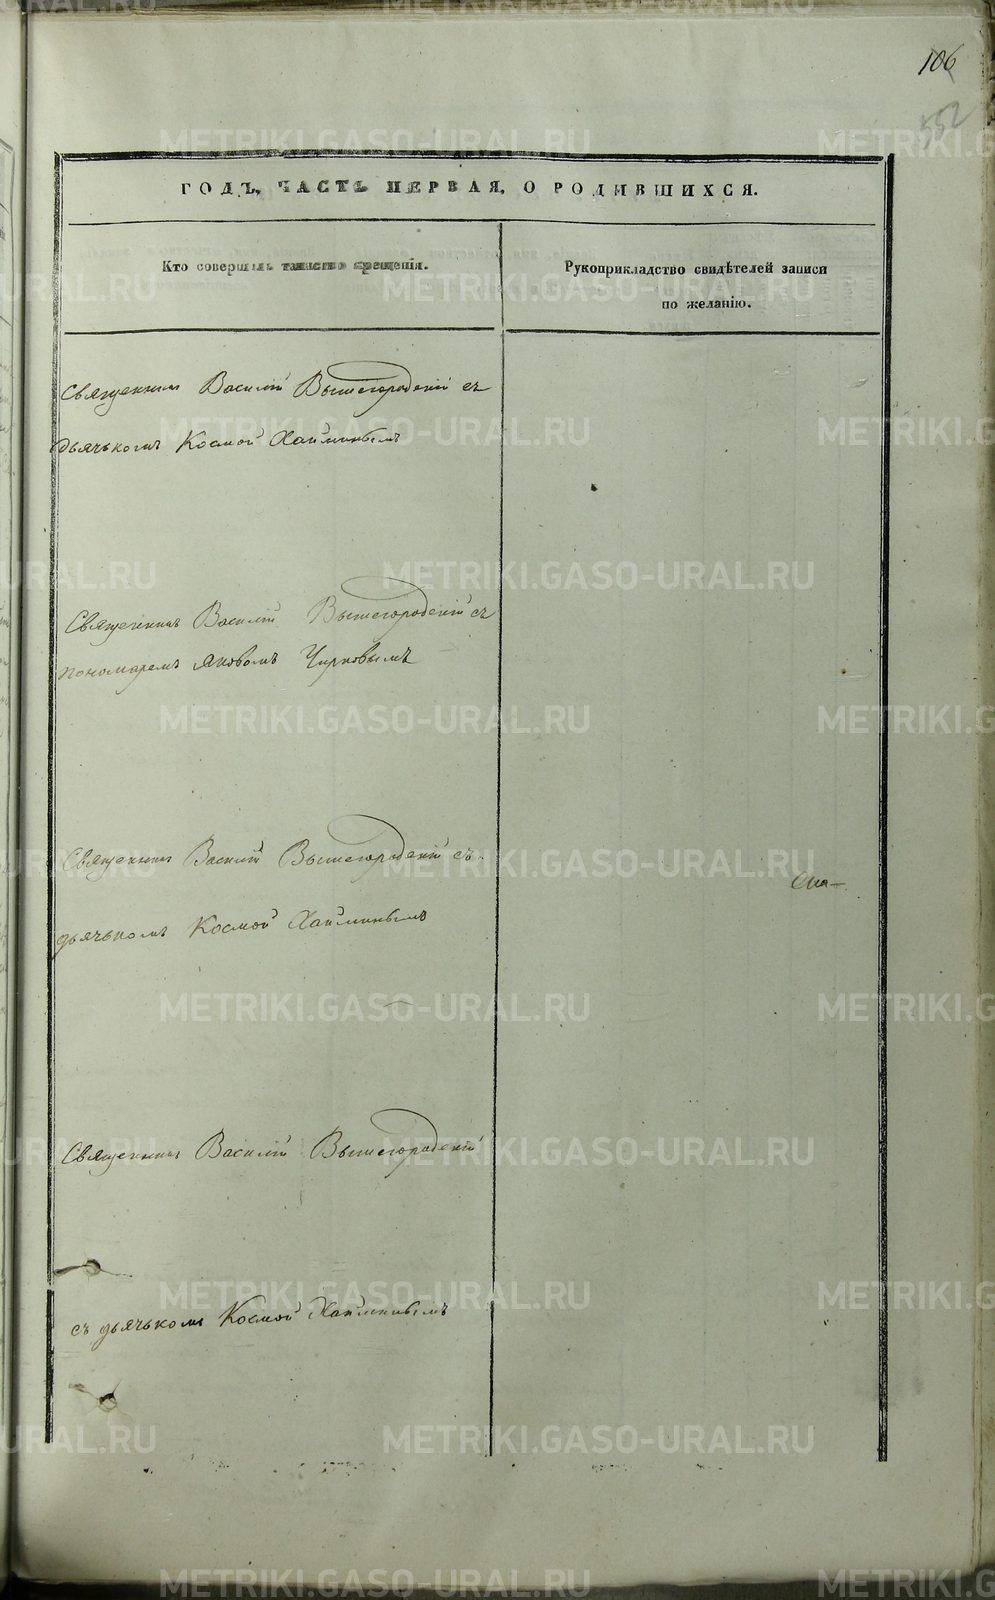 106
552
ГОДЪ, ЧАСТЬ ПЕРВАЯ, О РОДИВШИХСЯ.
Кто совершалъ таинство крещенія.
Рукоприкладство свидѣтелей записи
по желанію.
Священникъ Василій Вышегородскій съ
дьячькомъ Космой Хайминымъ
Священникъ Василій Вышегородскій съ
пономаремъ Яковомъ Чирковымъ
Священникъ Василій Вышегородскій съ
дьячькомъ Космой Хайминымъ
Священникъ Василій Вышегородскій
съ дьячькомъ Космой Хайминымъ
METRIKI.GASO-URAL.RU